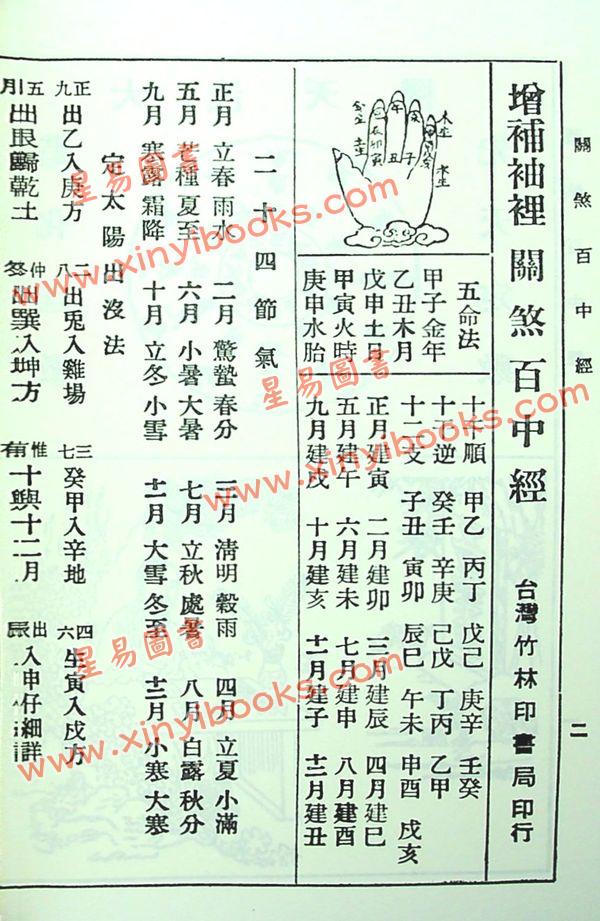 關煞百中經 二
增補袖裡關煞百中經 台灣竹林印書局印行
木生
水生
金生
土生
午
子
丑
寅
卯
五命法
甲子金年
乙丑木月
戊申土日
甲寅火時
庚申水胎
十干順 甲乙 丙丁 戊己 庚辛 壬癸
十干逆 癸壬 辛庚 己戊 丁丙 乙甲
十二支 子丑 寅卯 辰巳 午未 申酉 戌亥
正月建寅 二月建卯 三月建辰 四月建巳
五月建午 六月建未 七月建申 八月建酉
九月建戌 十月建亥 十一月建子 十二月建丑
二十四節氣
正月 立春 雨水 二月 驚蟄 春分 三月 清明 穀雨 四月 立夏 小滿
五月 芒種 夏至 六月 小暑 大暑 七月 立秋 處暑 八月 白露 秋分
九月 寒露 霜降 十月 立冬 小雪 十一月 大雪 冬至 十二月 小寒 大寒
定太陽出沒法
正九出乙入庚方 二八出兎入雞場 三七癸甲入辛地 四六生寅入戌方
五月出艮歸乾土 仲冬出巽入坤方 惟有十與十二月 出辰入申仔細詳
星易图書
www.xinyibooks.com
星易图書
www.xinyibooks.com
星易图書
www.xinyibooks.com